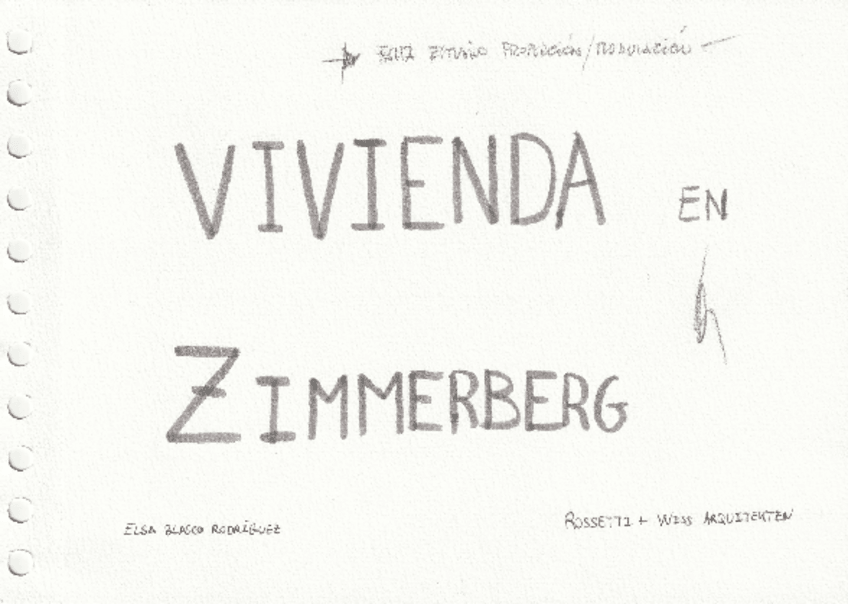 PROPORCIÓN/MODULACIÓN
VIVIENDA EN
ZIMMERBERG
ELSA BLASCO RODRÍGUEZ
ROSSETTI + WISS ARQUITEKTEN